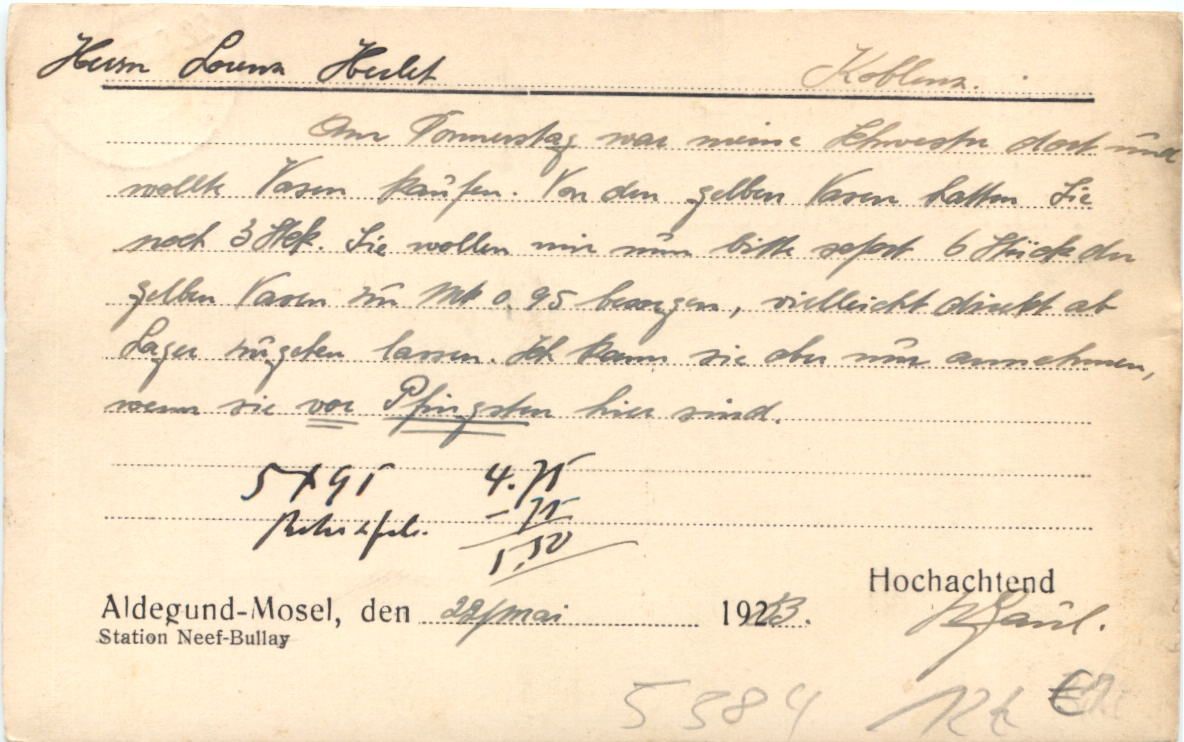 Herrn Lorenz Herlet Koblenz.
Am Donnerstag war meine Schwester dort und
wollte Vasen kaufen. Von den gelben Vasen hatten Sie
noch 3 Stck. Sie wollen mir nun bitte sofort 6 Stücke der
gelben Vasen zu Mk 0.95 besorgen, vielleicht direkt ab
Lager zugehen lassen. Ich kann sie aber nur annehmen,
wenn sie vor Pfingsten hier sind.
5 x 95 4.75
- 75
5,50
Hochachtend
Aldegund-Mosel, den 22/Mai 1923.
Station Neef-Bullay
5384